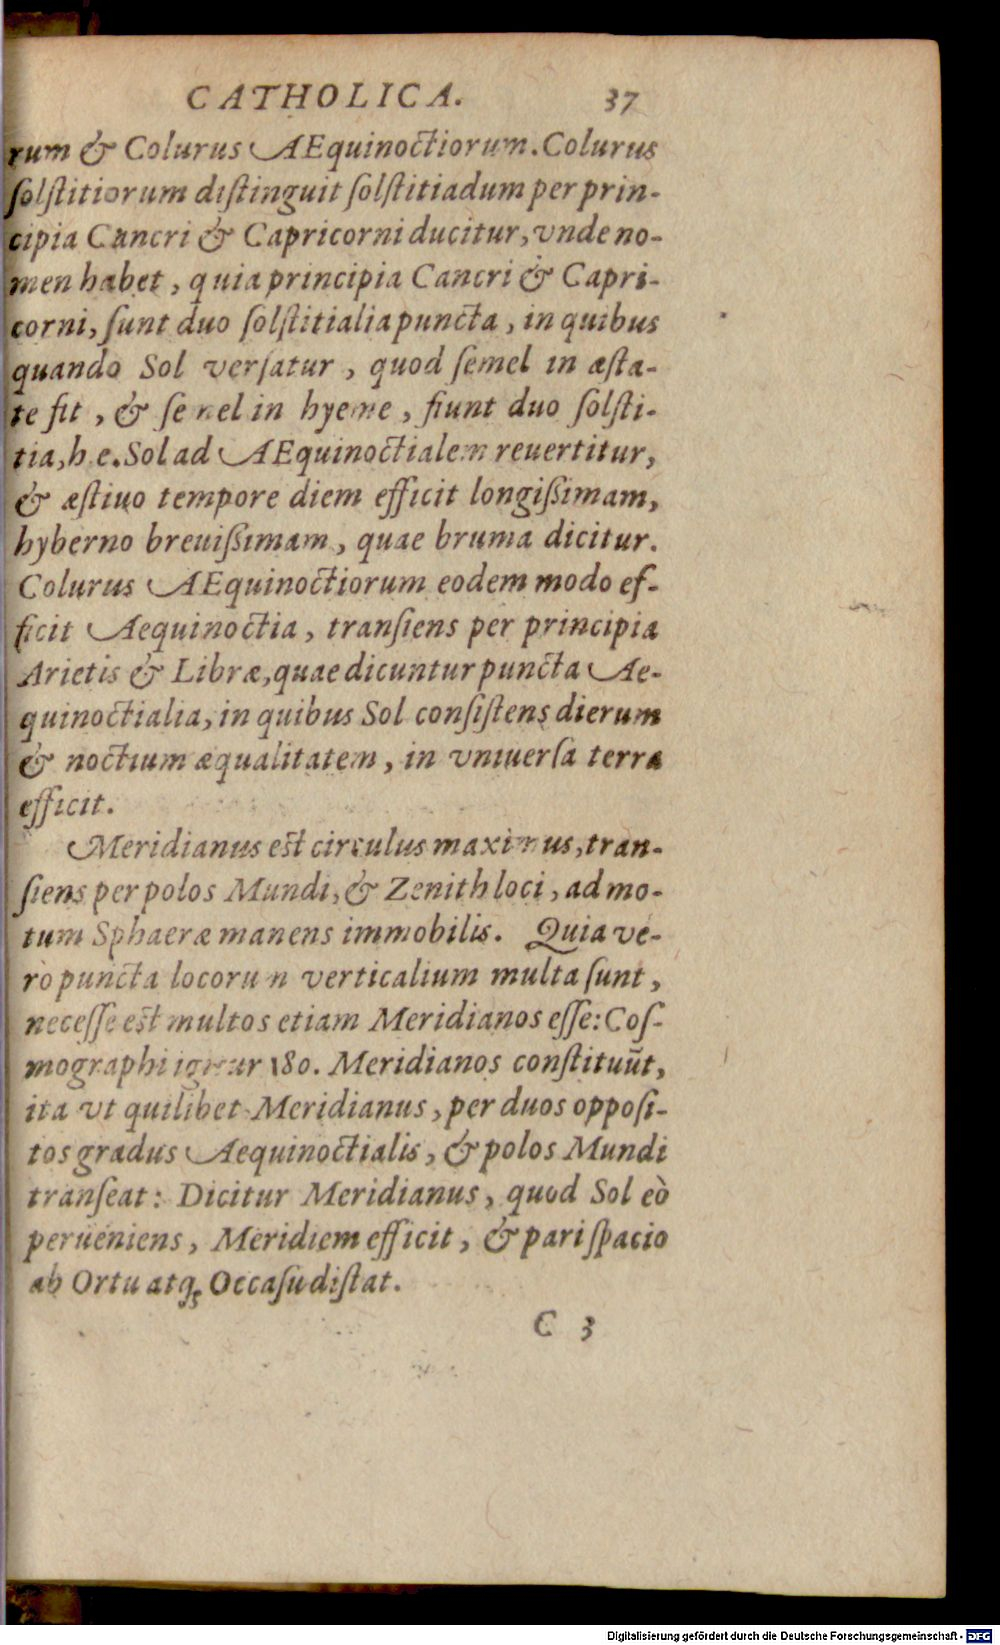 CATHOLICA. 37
rum & Colurus AEquinoctiorum. Colurus
ſolſtitiorum diſtinguit ſolſtitiadum per prin-
cipia Cancri & Capricorni ducitur, vnde no-
men habet, quia principia Cancri & Capri-
corni, ſunt duo ſolſtitialia puncta, in quibus
quando Sol verſatur, quod ſemel in æſta-
te fit, & ſemel in hyeme, fiunt duo ſolſti-
tia, h.e. Sol ad AEquinoctialem reuertitur,
& æſtiuo tempore diem efficit longiſſimam,
hyberno breuiſſimam, quae bruma dicitur.
Colurus AEquinoctiorum eodem modo ef-
ficit Aequinoctia, tranſiens per principia
Arietis & Libræ, quae dicuntur puncta Ae-
quinoctialia, in quibus Sol conſiſtens dierum
& noctium æqualitatem, in vniuerſa terra
efficit.
Meridianus est circulus maximus, tran-
ſiens per polos Mundi, & Zenith loci, ad mo-
tum Sphaeræ manens immobilis. Quia ve-
rò puncta locorum verticalium multa ſunt,
neceſſe est multos etiam Meridianos eſſe: Coſ-
mographi igitur 180. Meridianos conſtituũt,
ita vt quilibet Meridianus, per duos oppoſi-
tos gradus Aequinoctialis, & polos Mundi
tranſeat: Dicitur Meridianus, quod Sol eò
perueniens, Meridiem efficit, & pari ſpacio
ab Ortu atq; Occaſu diſtat.
C 3
Digitalisierung gefördert durch die Deutsche Forschungsgemeinschaft - DFG